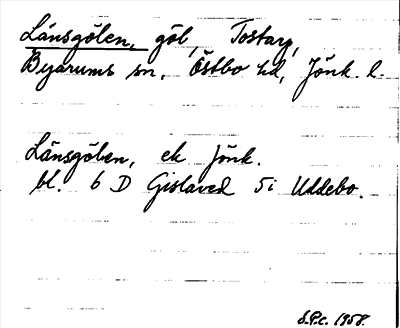 Länsgölen, göl, Tostarp,
Byarums sn, Östbo hd, Jönk. l.
Länsgölen, ek Jönk.
bl. 6 D Gislaved 5i Uddebo.
S.P.c. 1958.